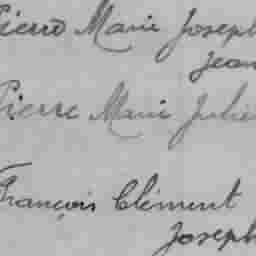 Pierre Marie Joseph
Jean
Pierre Marie Julie
François Clément
Joseph